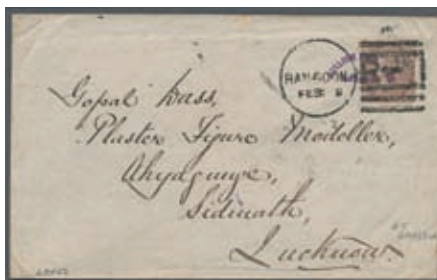 RANGOON
FEB 8
Gopal Dass,
Plaster Figure Modeller,
Ahyagunge,
Sidinath,
Lucknow.